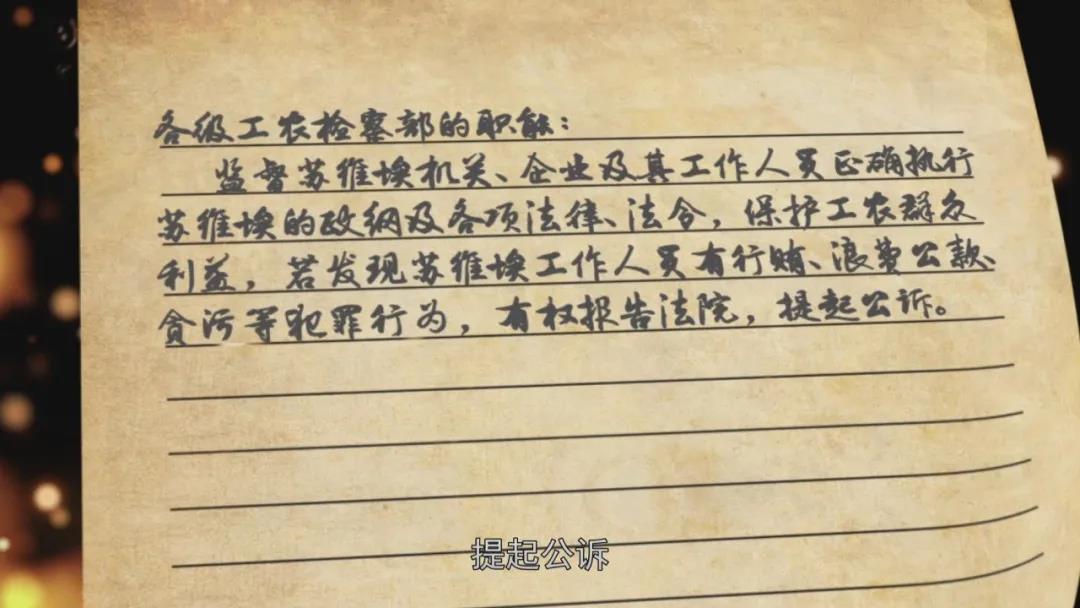 各级工农检察部的职能：
监督苏维埃机关、企业及其工作人员正确执行
苏维埃的政纲及各项法律、法令，保护工农群众
利益，若发现苏维埃工作人员有行贿、浪费公款、
贪污等犯罪行为，有权报告法院，提起公诉。
提起公诉